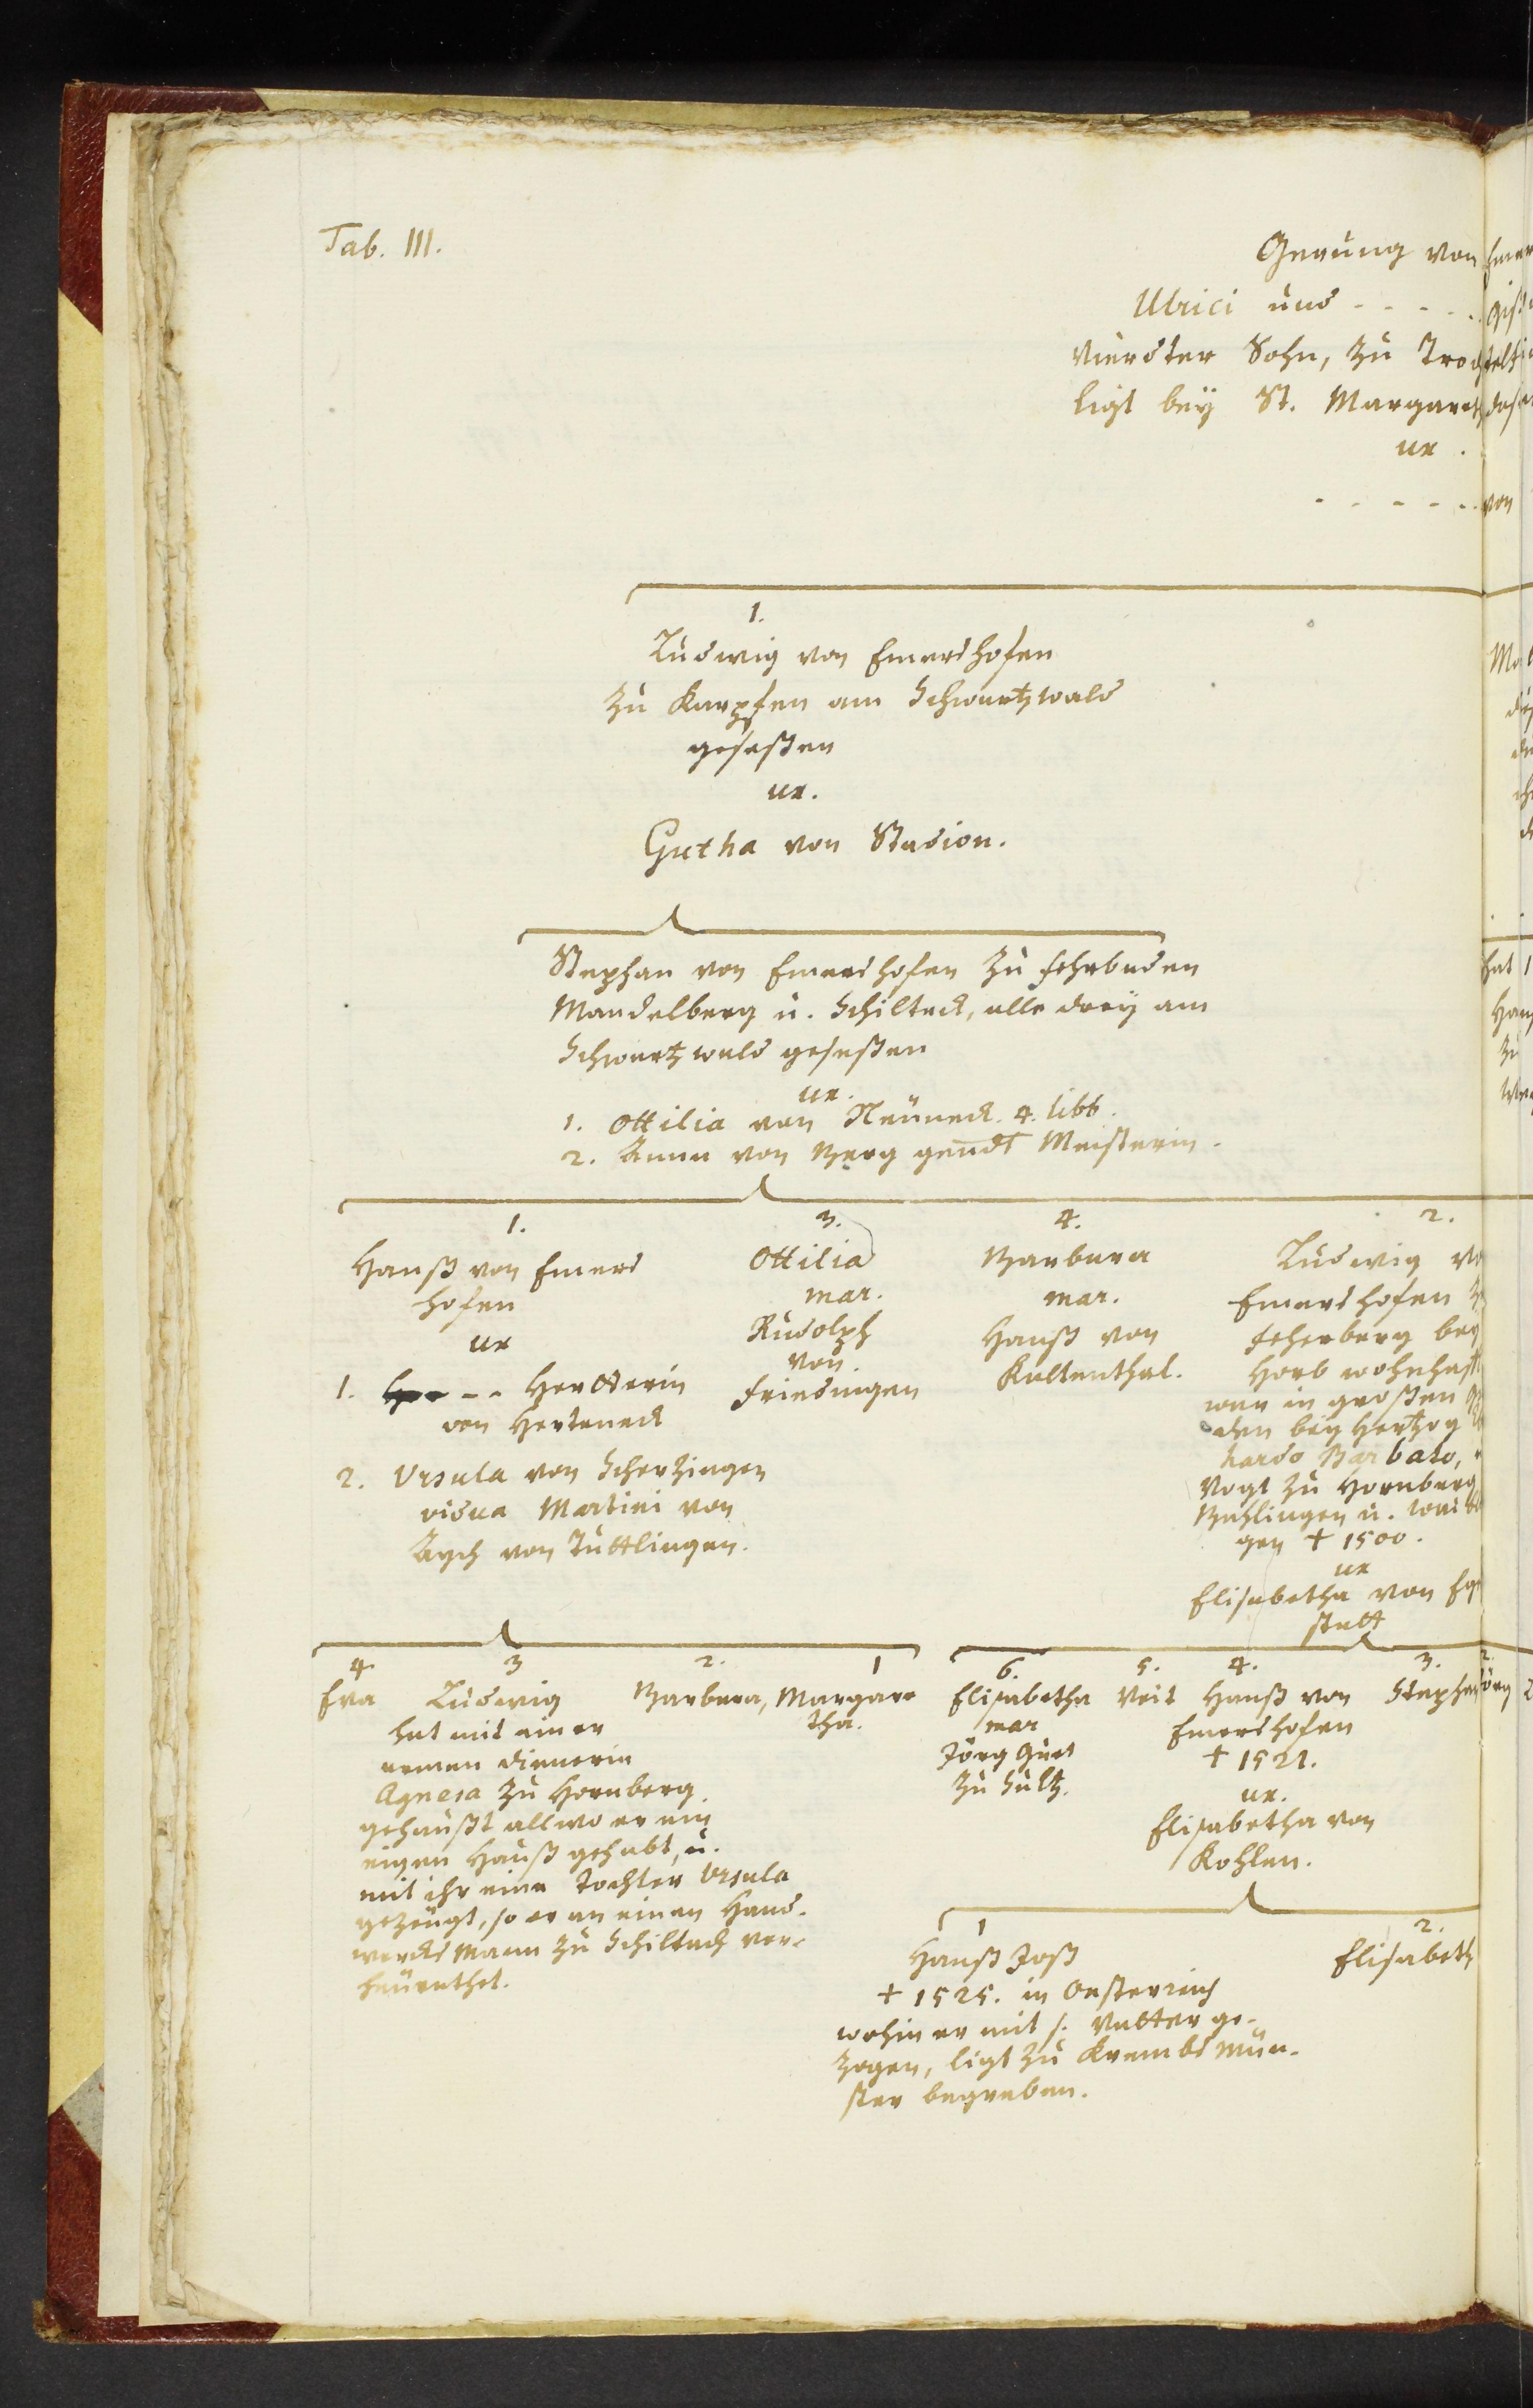 Tab. III.
Gerung von Emer
Ulrici und - - - - -
Vierdter Sohn, zu Trochtelfi
ligt beÿ St. Margareth
ux.
- - - - - von
1.
Ludwig von Emershofen
zu Karpfen am Schwartzwald
geseßen
ux.
Gutha von Stadion.
Stephan von Emershofen zu
Mandelberg u. Schilteck, alle dreÿ am
Schwartzwald geseßen
ux.
1. Ottilia von Neüneck. 4. libb.
2. Anna von Berg gendt Meisterin.
1.
Hanß von Emers
hofen
ux
1. - - Hertterin
von Herteneck
2. Ursula von Scherzingen
vidua Martini von
Aych von Tuttlingen.
3.
Ottilia
mar.
Rudolph
von.
Friedingen
4.
Barbara
mar.
Hanß von
Kaltenthal.
2.
Ludwig vo
Emershofen z
beÿ
Horb wohnhaft
war in großen
den beÿ Hertzog
hardo Barbato,
Vogt zu Hornberg
Bahlingen u.
gen † 1500.
ux
Elisabetha von
statt
4.
Eva
3
Ludwig
hat mit einer
armen dienerin
Agnesa zu Hornberg
gehaußt allwo er ein
eigen Hauß gehabt, u.
mit ihr eine Tochter Ursula
gezeügt, so er an einen Hand-
wercks Mann zu Schiltach ver-
heürathet.
2.
Barbara,
1
Margare
tha.
6.
Elisabetha
mar
Jörg Gut
zu Sultz.
5.
Veit
4.
Hanß von
Emershofen
† 1521.
ux.
Elisabetha von
Kohlen.
3.
Stephan
2.
Jörg
1
Hanß Joß
† 1525. in Oesterreich
wohin er mit s. Vatter ge-
zogen, ligt zu Krembs Mün-
ster begraben.
2.
Elisabeth